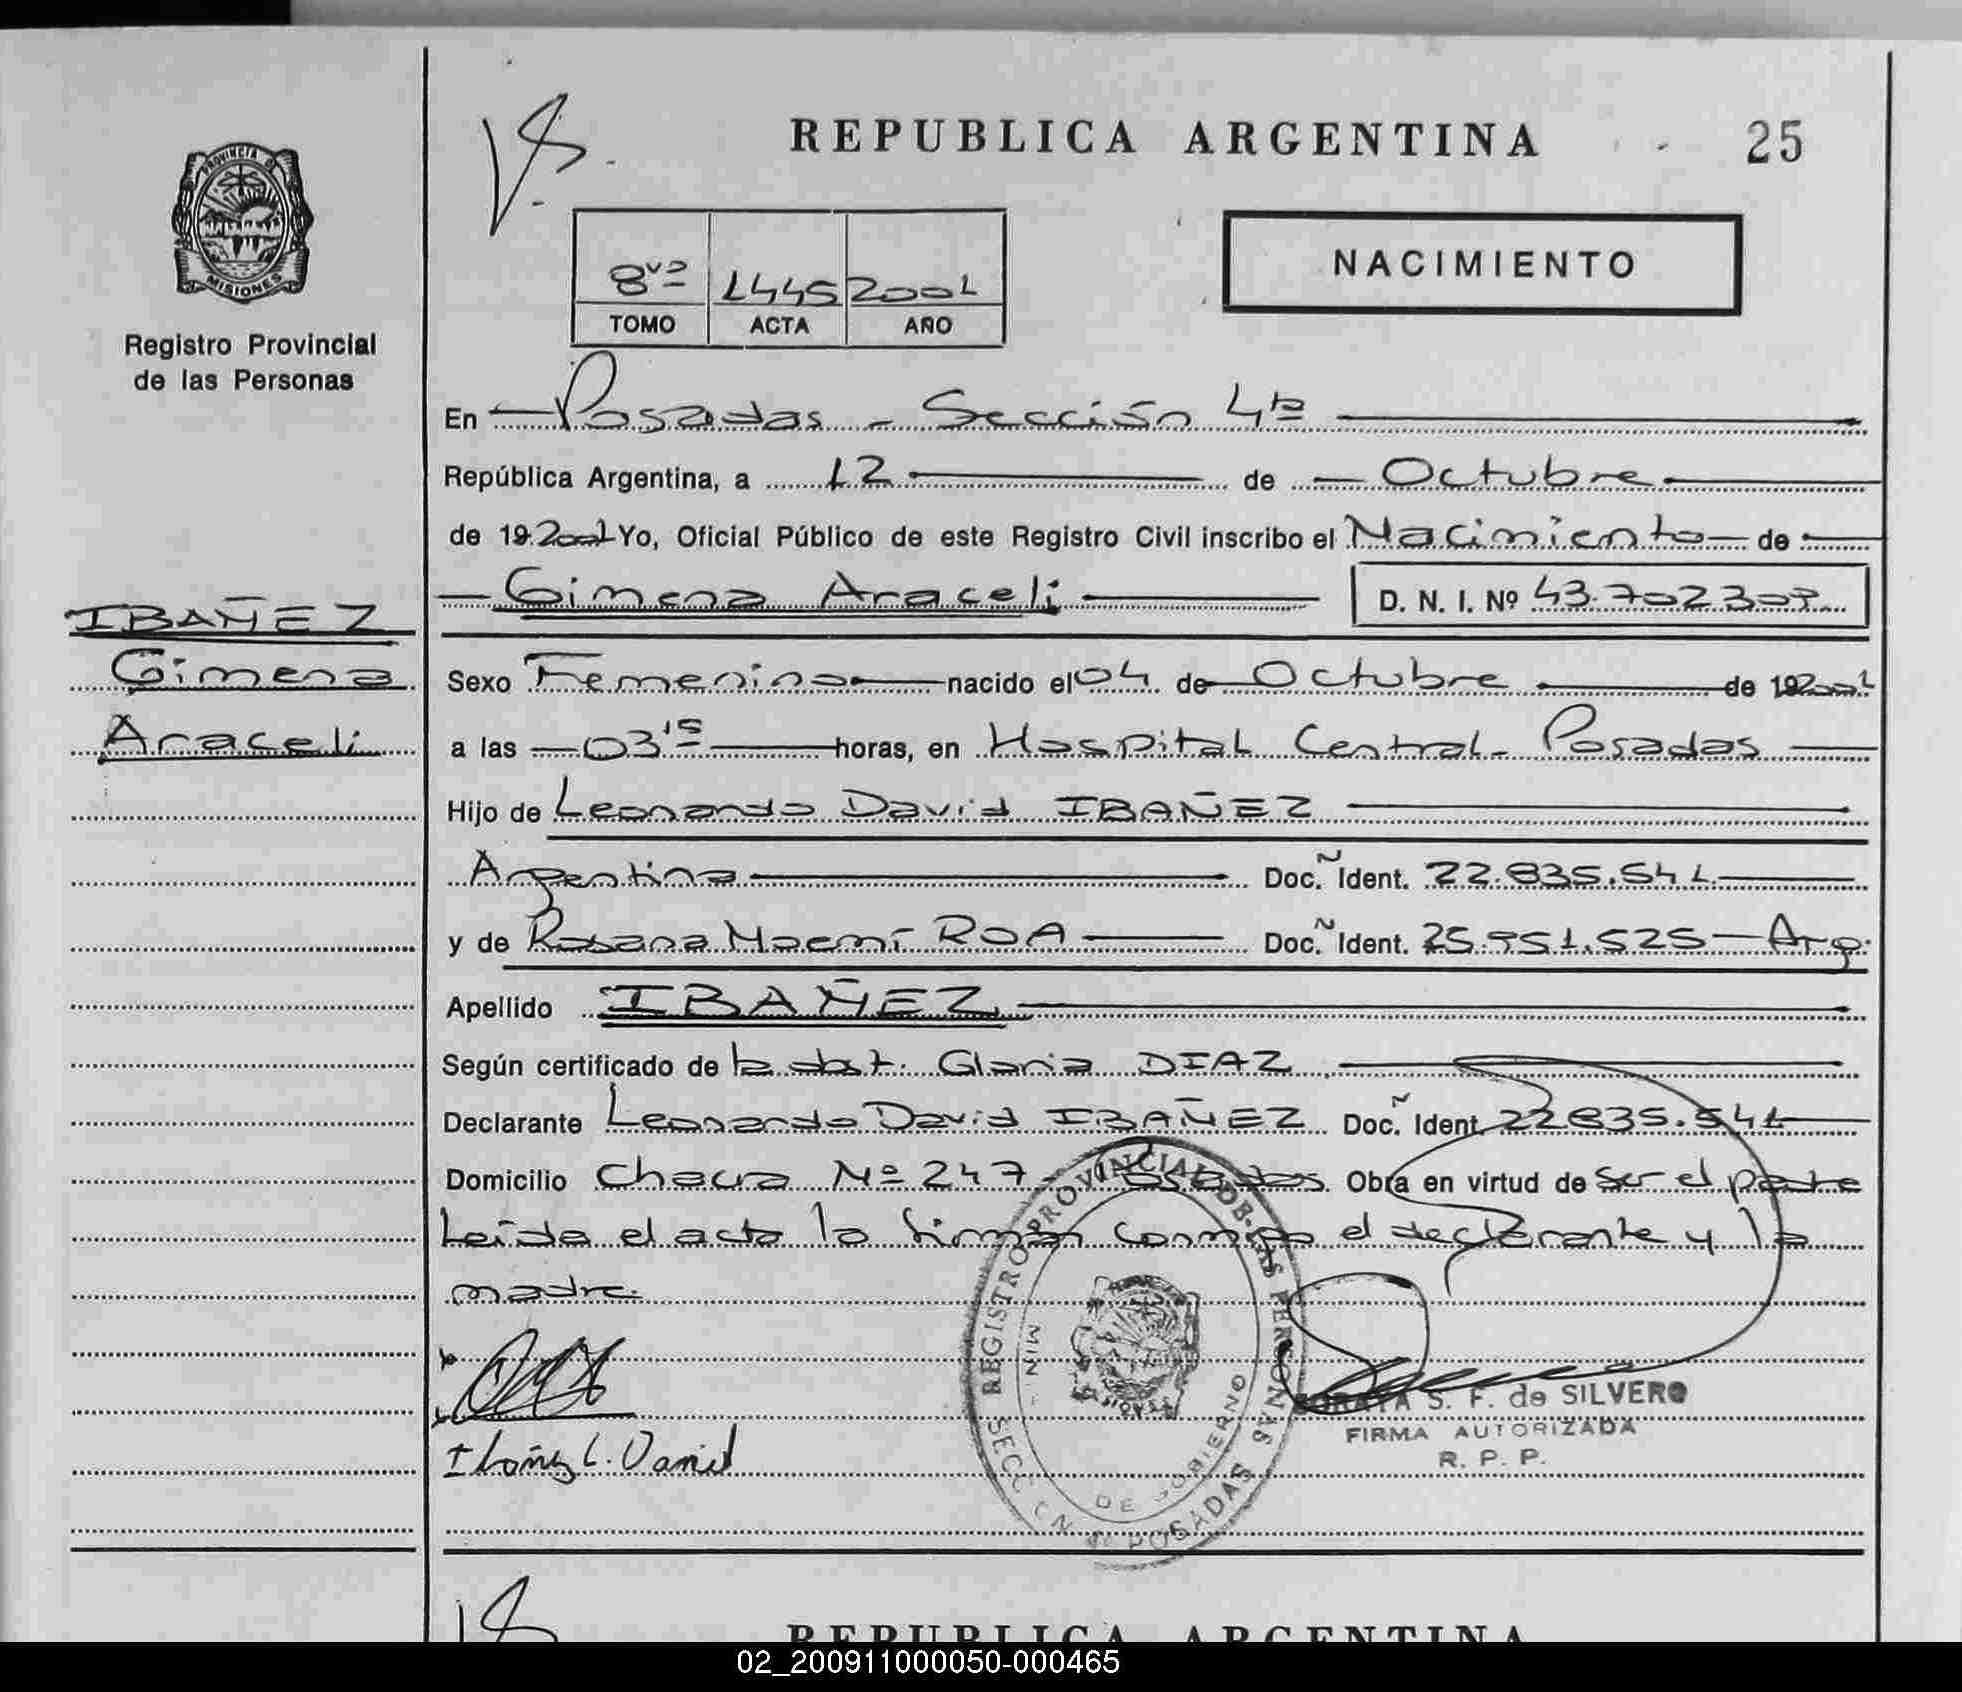 REPUBLICA ARGENTINA
25
PROVINCIA DE
MISIONES
Registro Provincial
de las Personas
NACIMIENTO
8vo 1445 2001
TOMO ACTA AÑO
En Posadas - Sección 4ta
República Argentina, a 12 de Octubre
de 19 2001 Yo, Oficial Público de este Registro Civil inscribo el Nacimiento de
Gimena Araceli D. N. I. Nº 43.702.307
IBAÑEZ
Gimena
Araceli
Sexo Femenino nacido el 04 de Octubre de 19 2001
a las 03 15 horas, en Hospital Central - Posadas
Hijo de Leonardo David IBAÑEZ
Argentina Doc. Ident. 22.835.541
y de Rosana Noemí ROA Doc. Ident. 25.951.525 - Arg.
Apellido IBAÑEZ
Según certificado de la obst. Gloria DIAZ
Declarante Leonardo David IBAÑEZ Doc. Ident. 22835.541
Domicilio Chacra Nº 247 - Posadas Obra en virtud de ser el padre
Leida el acta la firman conmigo el declarante y la
madre.
Ibañez L. David
REGISTRO PROVINCIAL DE LAS PERSONAS
MIN. DE GOBIERNO
POSADAS
S. F. de SILVERO
FIRMA AUTORIZADA
R. P. P.
REPUBLICA ARGENTINA
02_200911000050-000465